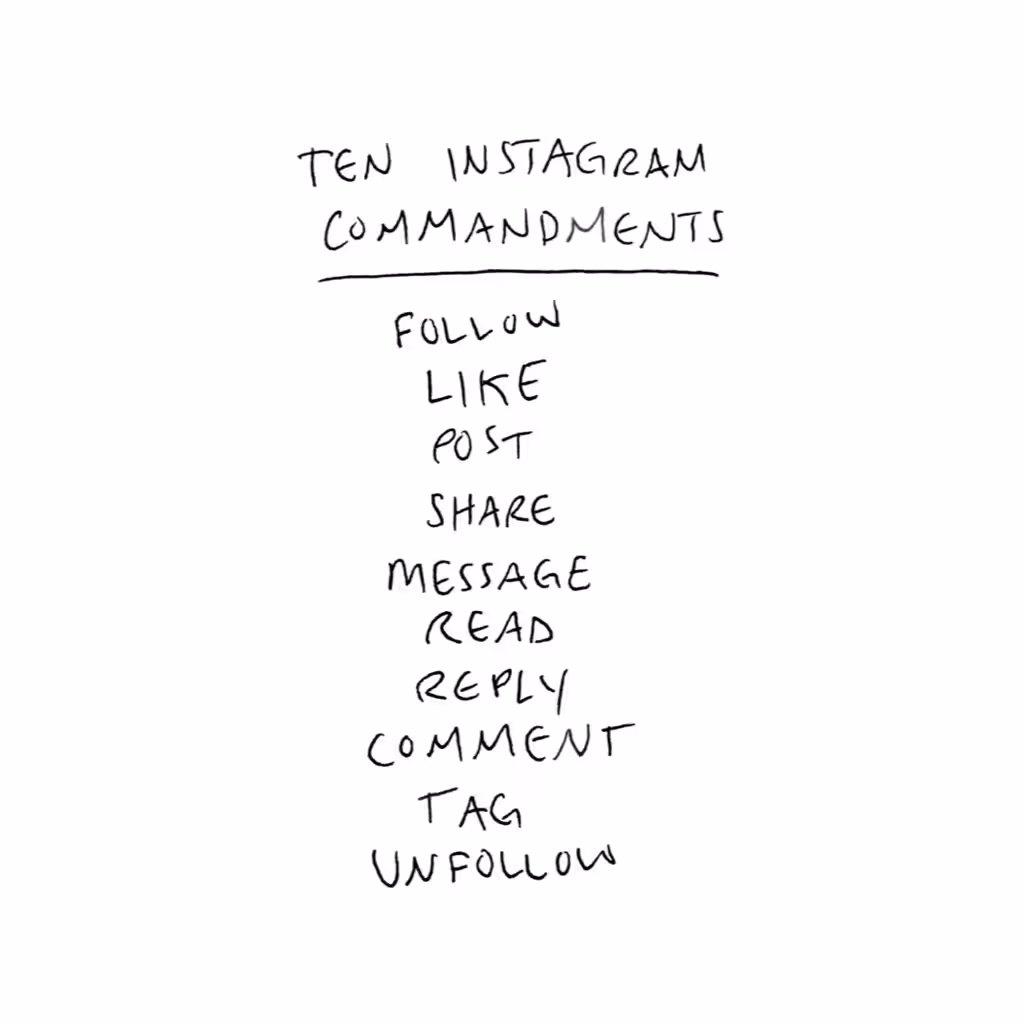 TEN INSTAGRAM
COMMANDMENTS
FOLLOW
LIKE
POST
SHARE
MESSAGE
READ
REPLY
COMMENT
TAG
UNFOLLOW